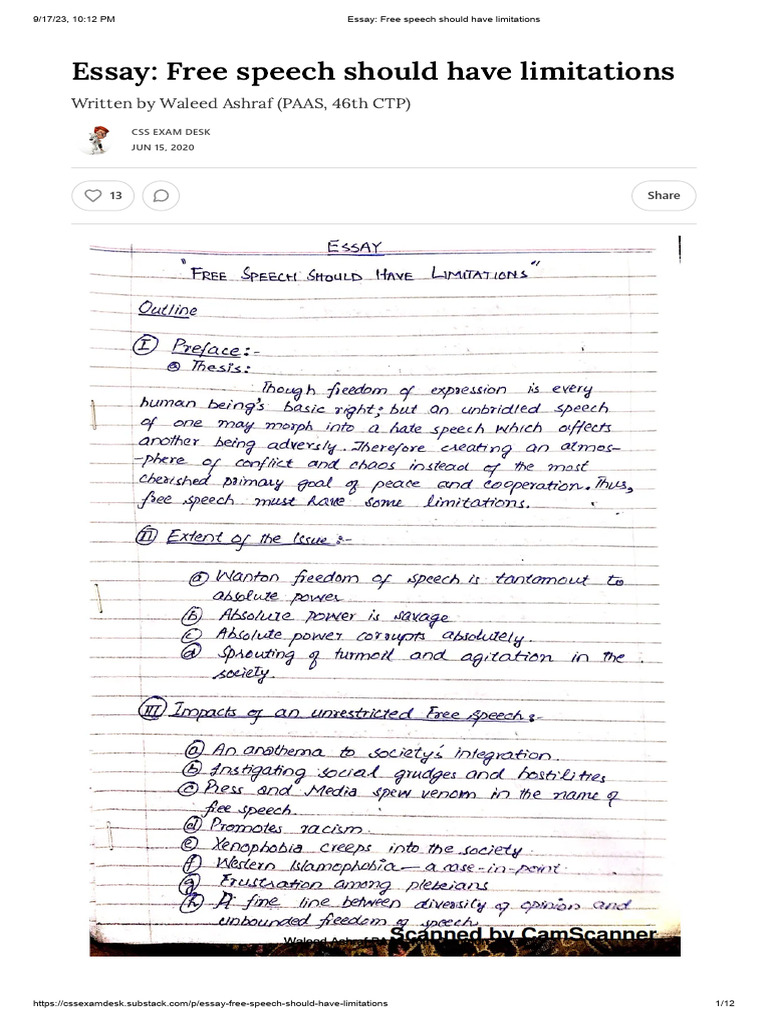 9/17/23, 10:12 PM Essay: Free speech should have limitations
Essay: Free speech should have limitations
Written by Waleed Ashraf (PAAS, 46th CTP)
CSS EXAM DESK
JUN 15, 2020
13 Share
ESSAY
"FREE SPEECH SHOULD HAVE LIMITATIONS"
Outline
I Preface:-
@ Thesis:
Though freedom of expression is every
human being's basic right; but an unbridled speech
of one may morph into a hate speech which affects
another being adversly. Therefore creating an atmos-
-phere of conflict and chaos instead of the most
cherished primary goal of peace and cooperation. Thus,
free speech must have some limitations.
II Extent of the Issue:-
a Wanton freedom of speech is tantamout to
absolute power
b Absolute power is savage
c Absolute power corrupts absolutely.
d Sprouting of turmoil and agitation in the
society.
III Impacts of an unrestricted Free speech:-
a An anathema to society's integration.
b Instigating social grudges and hostilities
c Press and Media spew venom in the name of
free speech.
d Promotes racism.
e Xenophobia creeps into the society.
f Western Islamophobia — a case-in-point.
g Frustration among plebeians
h A fine line between diversity of opinion and
unbounded freedom of speech
Waleed Ashraf Scanned by CamScanner
https://cssexamdesk.substack.com/p/essay-free-speech-should-have-limitations 1/12